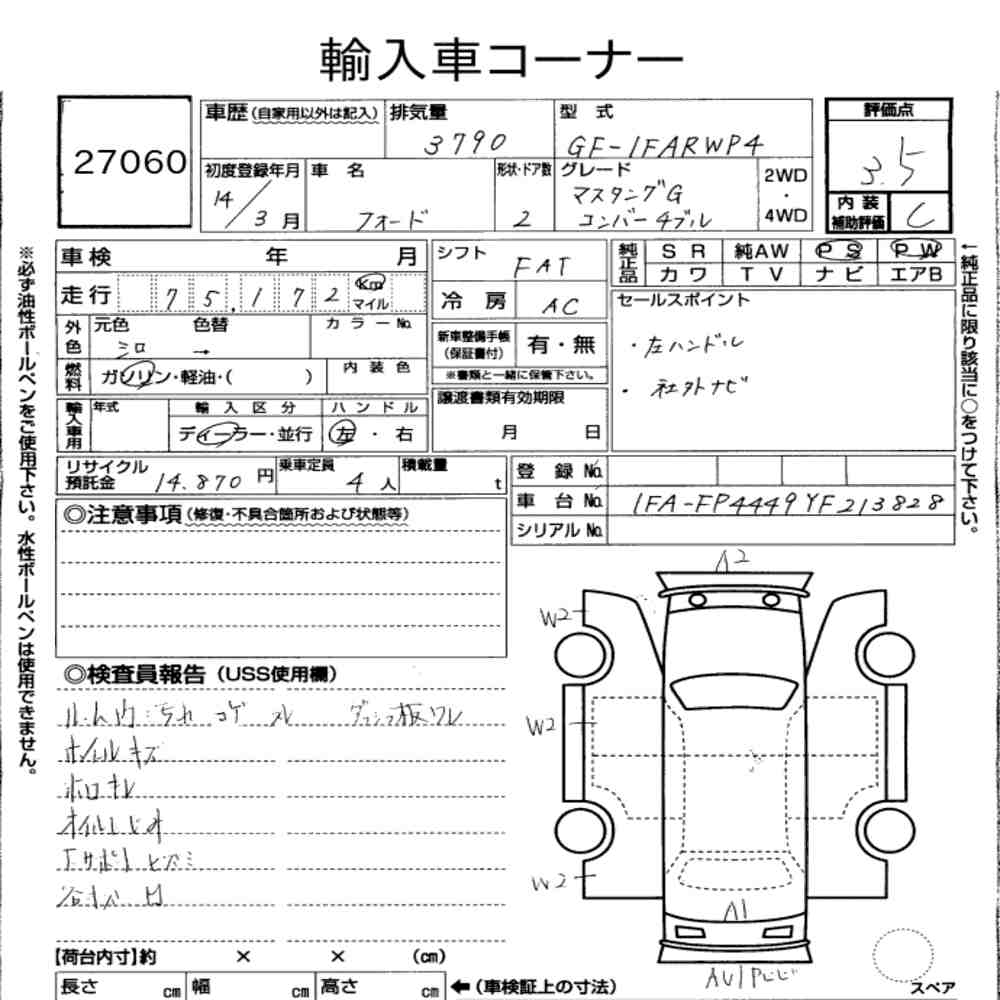 輸入車コーナー
27060
車歴(自家用以外は記入)
排気量
3790
型 式
GF-1FARWP4
評価点
3.5
初度登録年月
14/3月
車 名
フォード
形状・ドア数
2
グレード
マスタングG
コンバーチブル
2WD
・
4WD
内 装
補助評価
C
車検 年 月
走行 75,172 Km
マイル
シフト
FAT
冷 房
AC
純正品
SR 純AW PS PW
カワ TV ナビ エアB
外色
元色 色替
シロ →
カラーNo.
燃料
ガソリン・軽油・( )
内 装 色
新車整備手帳
(保証書付)
有・無
※書類と一緒に保管下さい。
セールスポイント
・左ハンドル
・社外ナビ
輸入車用
年式
輸 入 区 分
ディーラー・並行
ハ ン ド ル
左 ・ 右
譲渡書類有効期限
月 日
リサイクル
預託金
14.870 円
乗車定員
4 人
積載量
t
登 録 No.
車 台 No. 1FA-FP4449YF213828
シリアル No.
◎注意事項(修復・不具合箇所および状態等)
◎検査員報告(USS使用欄)
ルーム内汚れ コゲ スレ ダッシュ板ワレ
ホイルキズ
ホロキレ
オイルにじみ
Fサポートヒズミ
A2
W2
W2
W2
A1
【荷台内寸】約 × × (cm)
長さ cm 幅 cm 高さ cm
←(車検証上の寸法)
スペア
※必ず油性ボールペンをご使用下さい。水性ボールペンは使用できません。
←純正品に限り該当に○をつけて下さい。